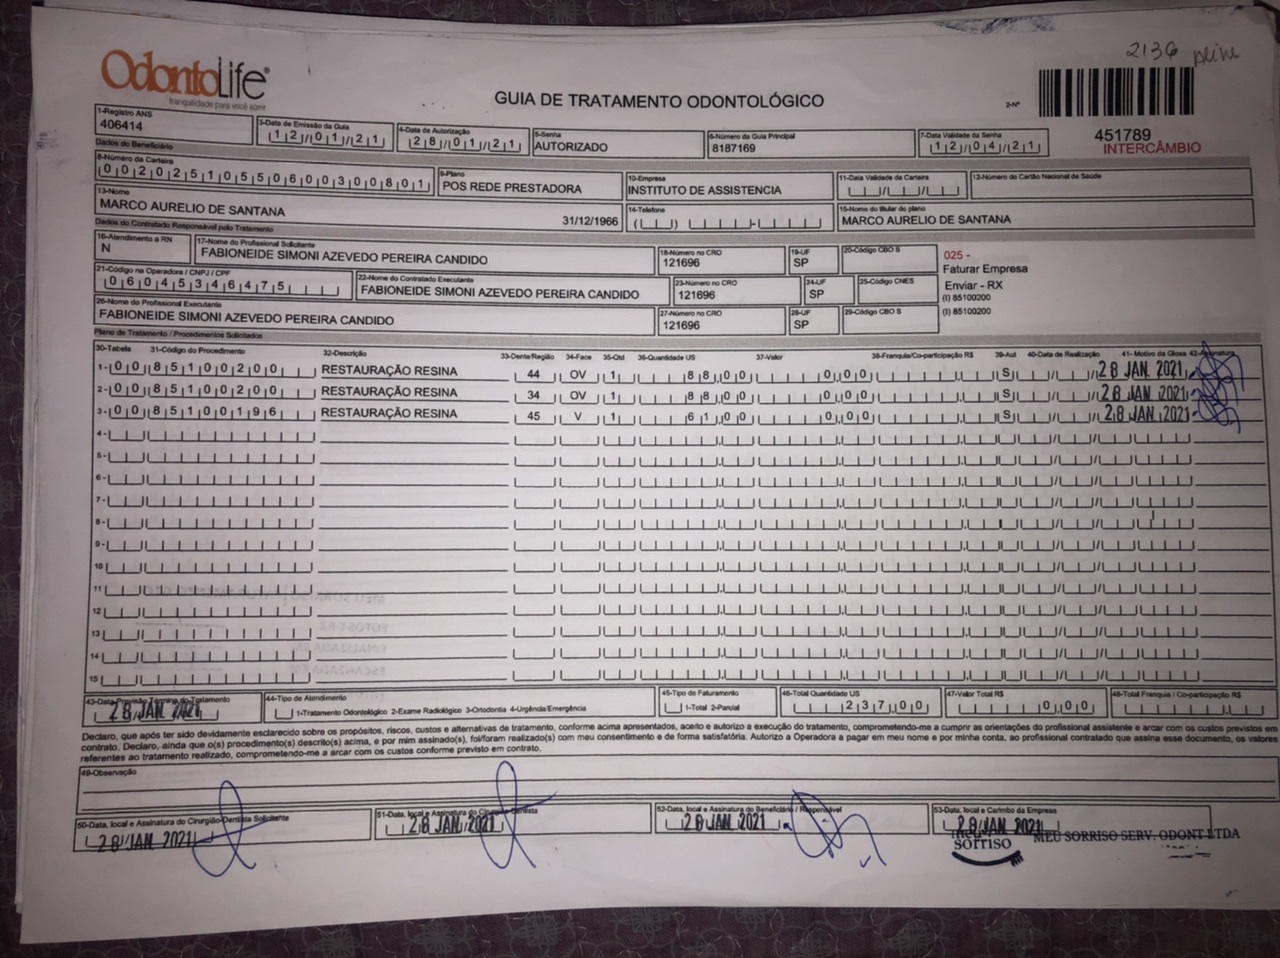 2136
OdontoLife®
tranquilidade para você sorrir
GUIA DE TRATAMENTO ODONTOLÓGICO
2-Nº
451789
INTERCÂMBIO
1-Registro ANS
406414
3-Data de Emissão da Guia
12/01/21
4-Data de Autorização
28/01/21
5-Senha
AUTORIZADO
6-Número da Guia Principal
8187169
7-Data Validade da Senha
12/04/21
Dados do Beneficiário
8-Número da Carteira
00202510550600300801
9-Plano
POS REDE PRESTADORA
10-Empresa
INSTITUTO DE ASSISTENCIA
11-Data Validade da Carteira
12-Número do Cartão Nacional de Saúde
13-Nome
MARCO AURELIO DE SANTANA 31/12/1966
14-Telefone
15-Nome do titular do plano
MARCO AURELIO DE SANTANA
Dados do Contratado Responsável pelo Tratamento
16-Atendimento a RN
N
17-Nome do Profissional Solicitante
FABIONEIDE SIMONI AZEVEDO PEREIRA CANDIDO
18-Número no CRO
121696
19-UF
SP
20-Código CBO S
025 -
Faturar Empresa
Enviar - RX
(I) 85100200
(I) 85100200
21-Código na Operadora / CNPJ / CPF
06045346475
22-Nome do Contratado Executante
FABIONEIDE SIMONI AZEVEDO PEREIRA CANDIDO
23-Número no CRO
121696
24-UF
SP
25-Código CNES
26-Nome do Profissional Executante
FABIONEIDE SIMONI AZEVEDO PEREIRA CANDIDO
27-Número no CRO
121696
28-UF
SP
29-Código CBO S
Plano de Tratamento / Procedimentos Solicitados
30-Tabela 31-Código do Procedimento 32-Descrição 33-Dente/Região 34-Face 35-Qtd 36-Quantidade US 37-Valor 38-Franquia/Co-participação R$ 39-Aut 40-Data de Realização 41- Motivo da Glosa 42-Assinatura
1- 00 85100200 RESTAURAÇÃO RESINA 44 OV 1 88,00 0,00 S 28 JAN. 2021
2- 00 85100200 RESTAURAÇÃO RESINA 34 OV 1 88,00 0,00 S 28 JAN. 2021
3- 00 85100196 RESTAURAÇÃO RESINA 45 V 1 61,00 0,00 S 28 JAN. 2021
4-
5-
6-
7-
8-
9-
10
11
12
13
14
15
43-Data Previsão Término do Tratamento
28 JAN. 2021
44-Tipo de Atendimento
1-Tratamento Odontológico 2-Exame Radiológico 3-Ortodontia 4-Urgência/Emergência
45-Tipo de Faturamento
1-Total 2-Parcial
46-Total Quantidade US
237,00
47-Valor Total R$
0,00
48-Total Franquia / Co-participação R$
Declaro, que após ter sido devidamente esclarecido sobre os propósitos, riscos, custos e alternativas de tratamento, conforme acima apresentados, aceito e autorizo a execução do tratamento, comprometendo-me a cumprir as orientações do profissional assistente e arcar com os custos previstos em
contrato. Declaro, ainda que o(s) procedimento(s) descrito(s) acima, e por mim assinado(s), foi/foram realizado(s) com meu consentimento e de forma satisfatória. Autorizo a Operadora a pagar em meu nome e por minha conta, ao profissional contratado que assina esse documento, os valores
referentes ao tratamento realizado, comprometendo-me a arcar com os custos conforme previsto em contrato.
49-Observação
50-Data, local e Assinatura do Cirurgião-Dentista Solicitante
28 JAN. 2021
51-Data, local e Assinatura do Cirurgião-Dentista
28 JAN. 2021
52-Data, local e Assinatura do Beneficiário / Responsável
28 JAN. 2021
53-Data, local e Carimbo da Empresa
28 JAN. 2021
meu sorriso
MEU SORRISO SERV. ODONT LTDA